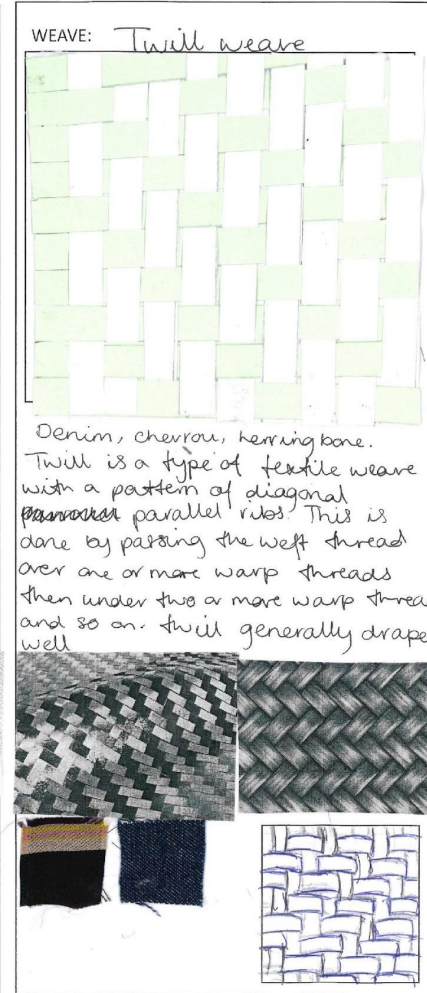 WEAVE: Twill weave
Denim, chevron, herringbone.
Twill is a type of textile weave
with a pattern of diagonal
parallel ribs. This is
done by passing the weft thread
over one or more warp threads
then under two or more warp threa
and so on. twill generally drape
well